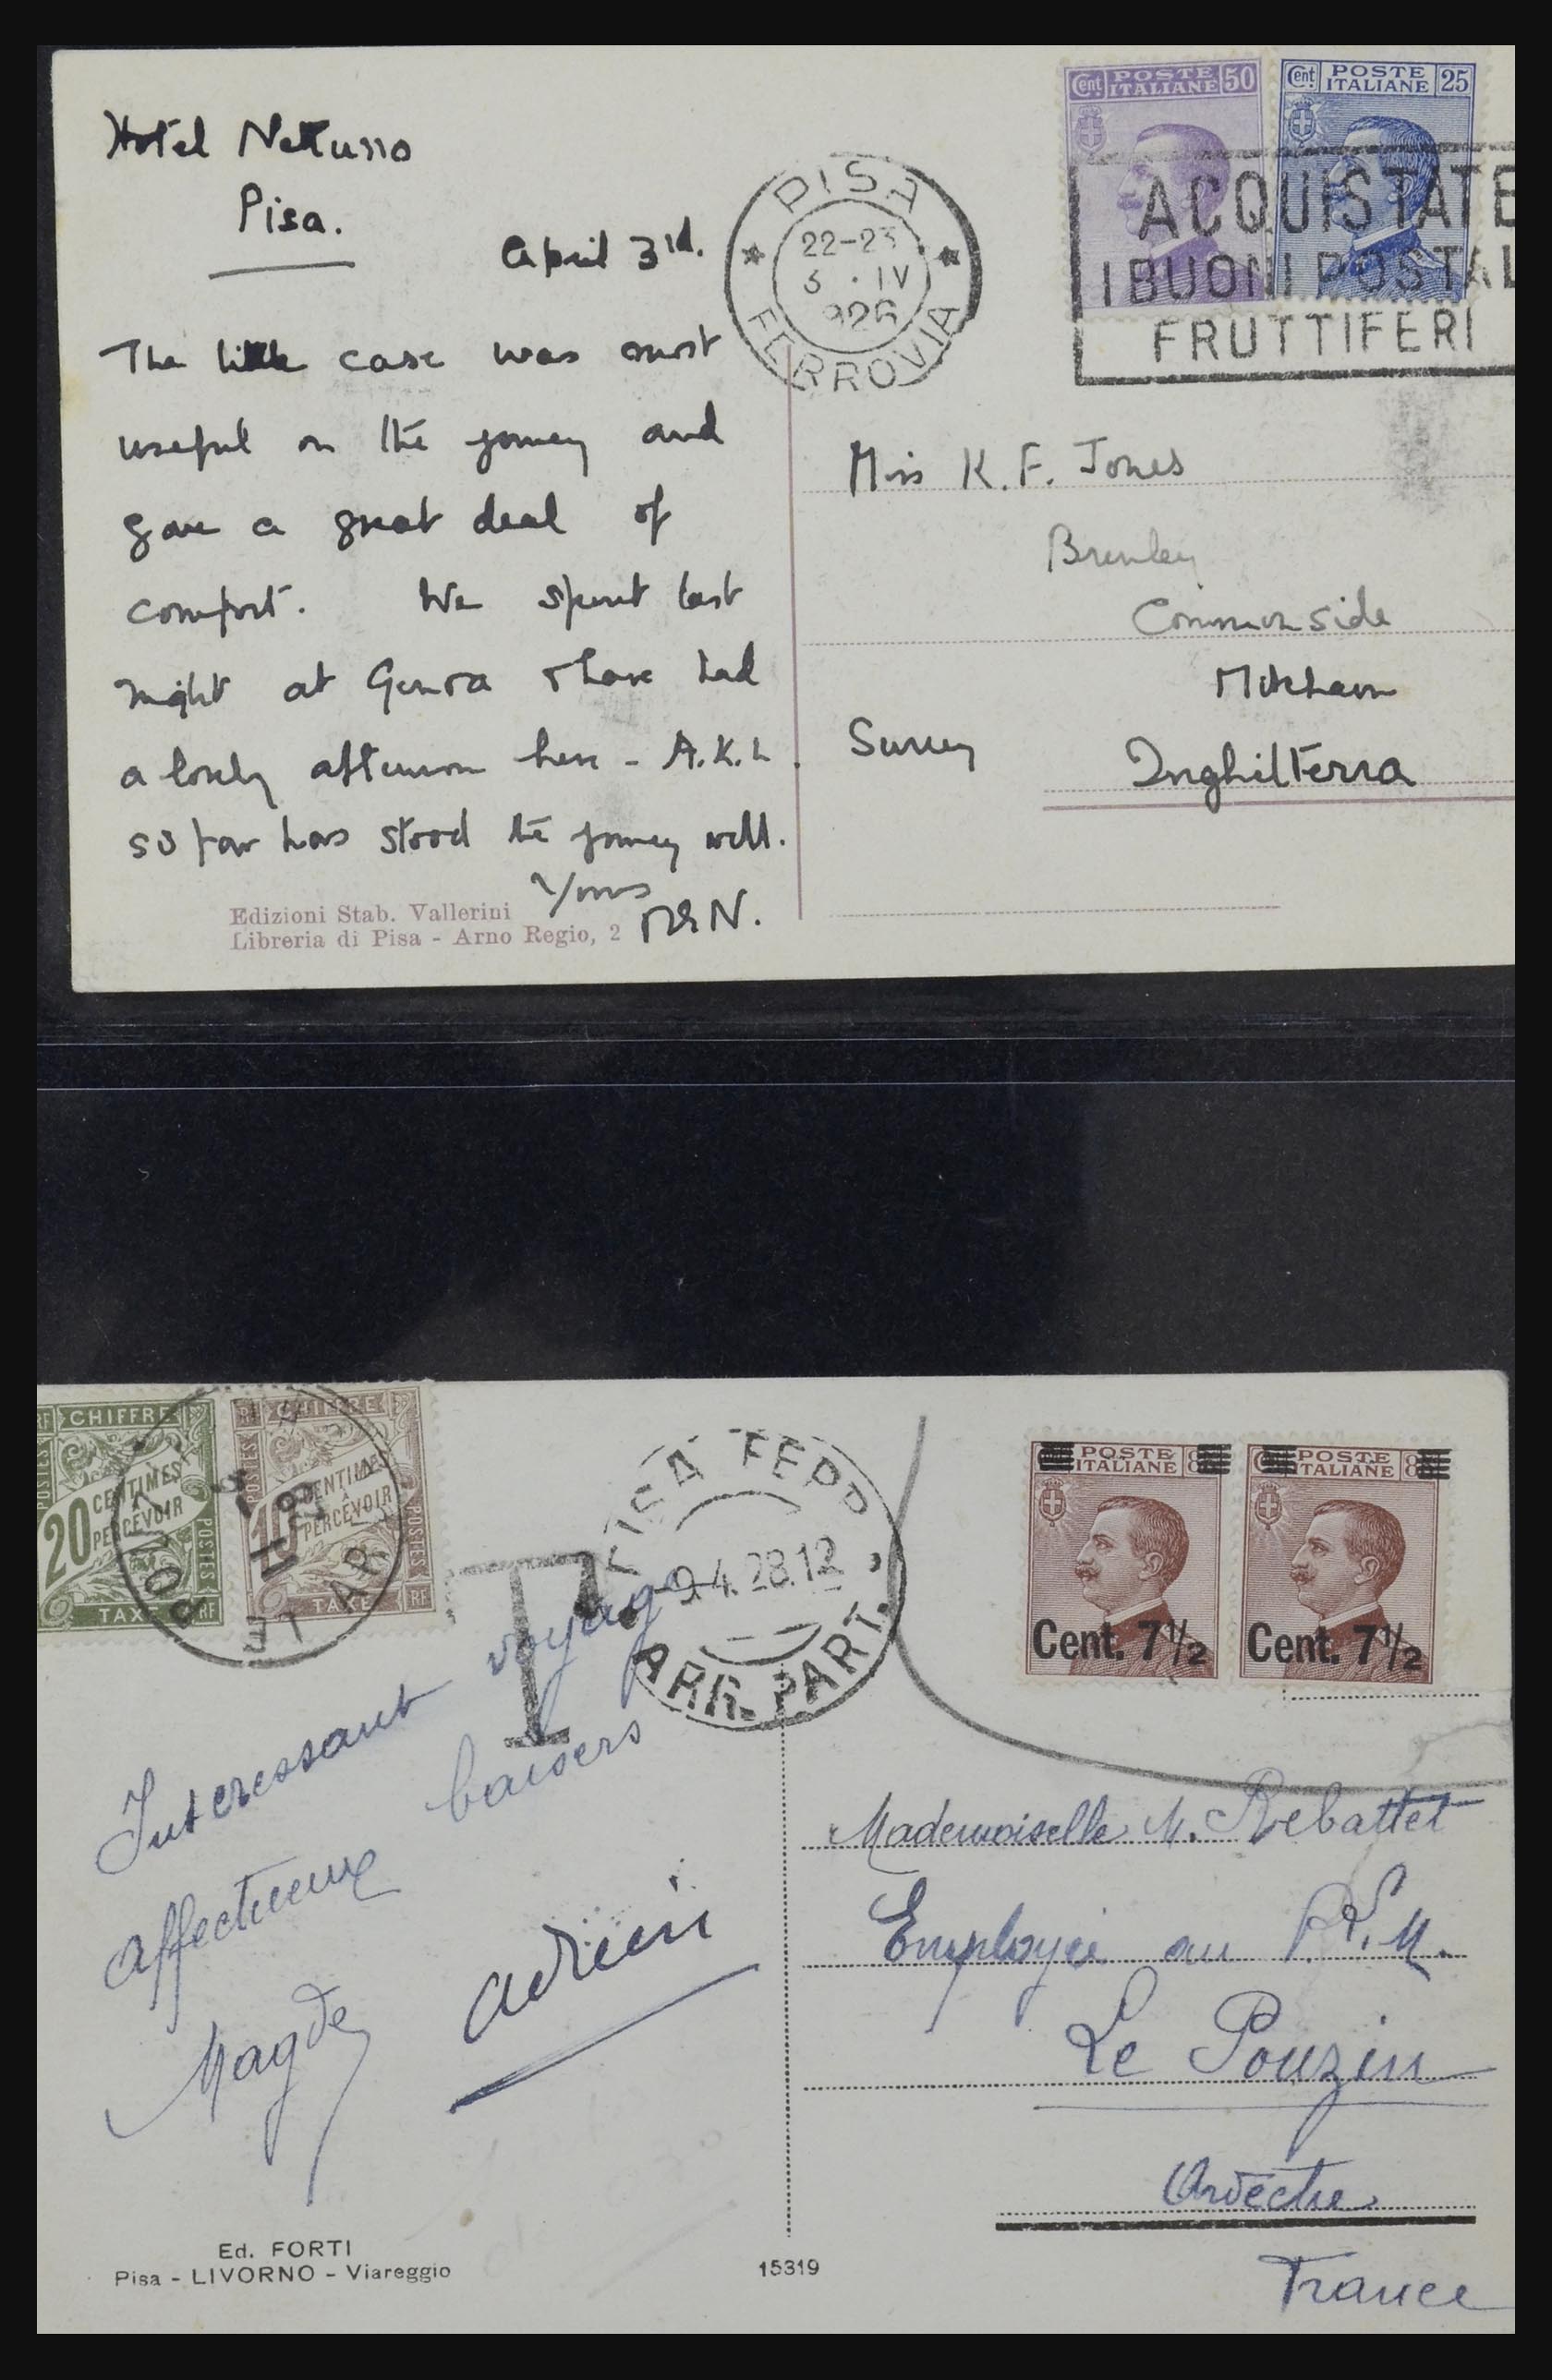 Hotel Nettuno
Pisa.
April 3rd.
The little case was most
useful on the journey and
gave a great deal of
comfort. We spent last
night at Genoa & have had
a lovely afternoon here - A.K.L.
so far has stood the journey well.
Yours
Edizioni Stab. Vallerini
Libreria di Pisa - Arno Regio, 2
PISA
22-23
3 · IV
926
FERROVIA
Cent. POSTE ITALIANE 50
Cent. POSTE ITALIANE 25
ACQUISTATE
I BUONI POSTAL
FRUTTIFERI
Miss K. F. Jones
Commonside
Mitcham
Surrey
Inghilterra
RF CHIFFRE
POSTES
20 CENTIMES
PERCEVOIR
POSTES
TAXE RF
RF CHIFFRE
POSTES
CENTIMES
PERCEVOIR
POSTES
TAXE RF
T
PISA FERR.
-9.4.28.12
ARR. PART.
POSTE
ITALIANE
Cent. 7½
POSTE
ITALIANE
Cent. 7½
Interessant voyage
affectueux baisers
Magde Adrien
Mademoiselle M. Rebattet
Employée au P.L.M.
Le Pouzin
Ardèche
France
Ed. FORTI
Pisa - LIVORNO - Viareggio
15319